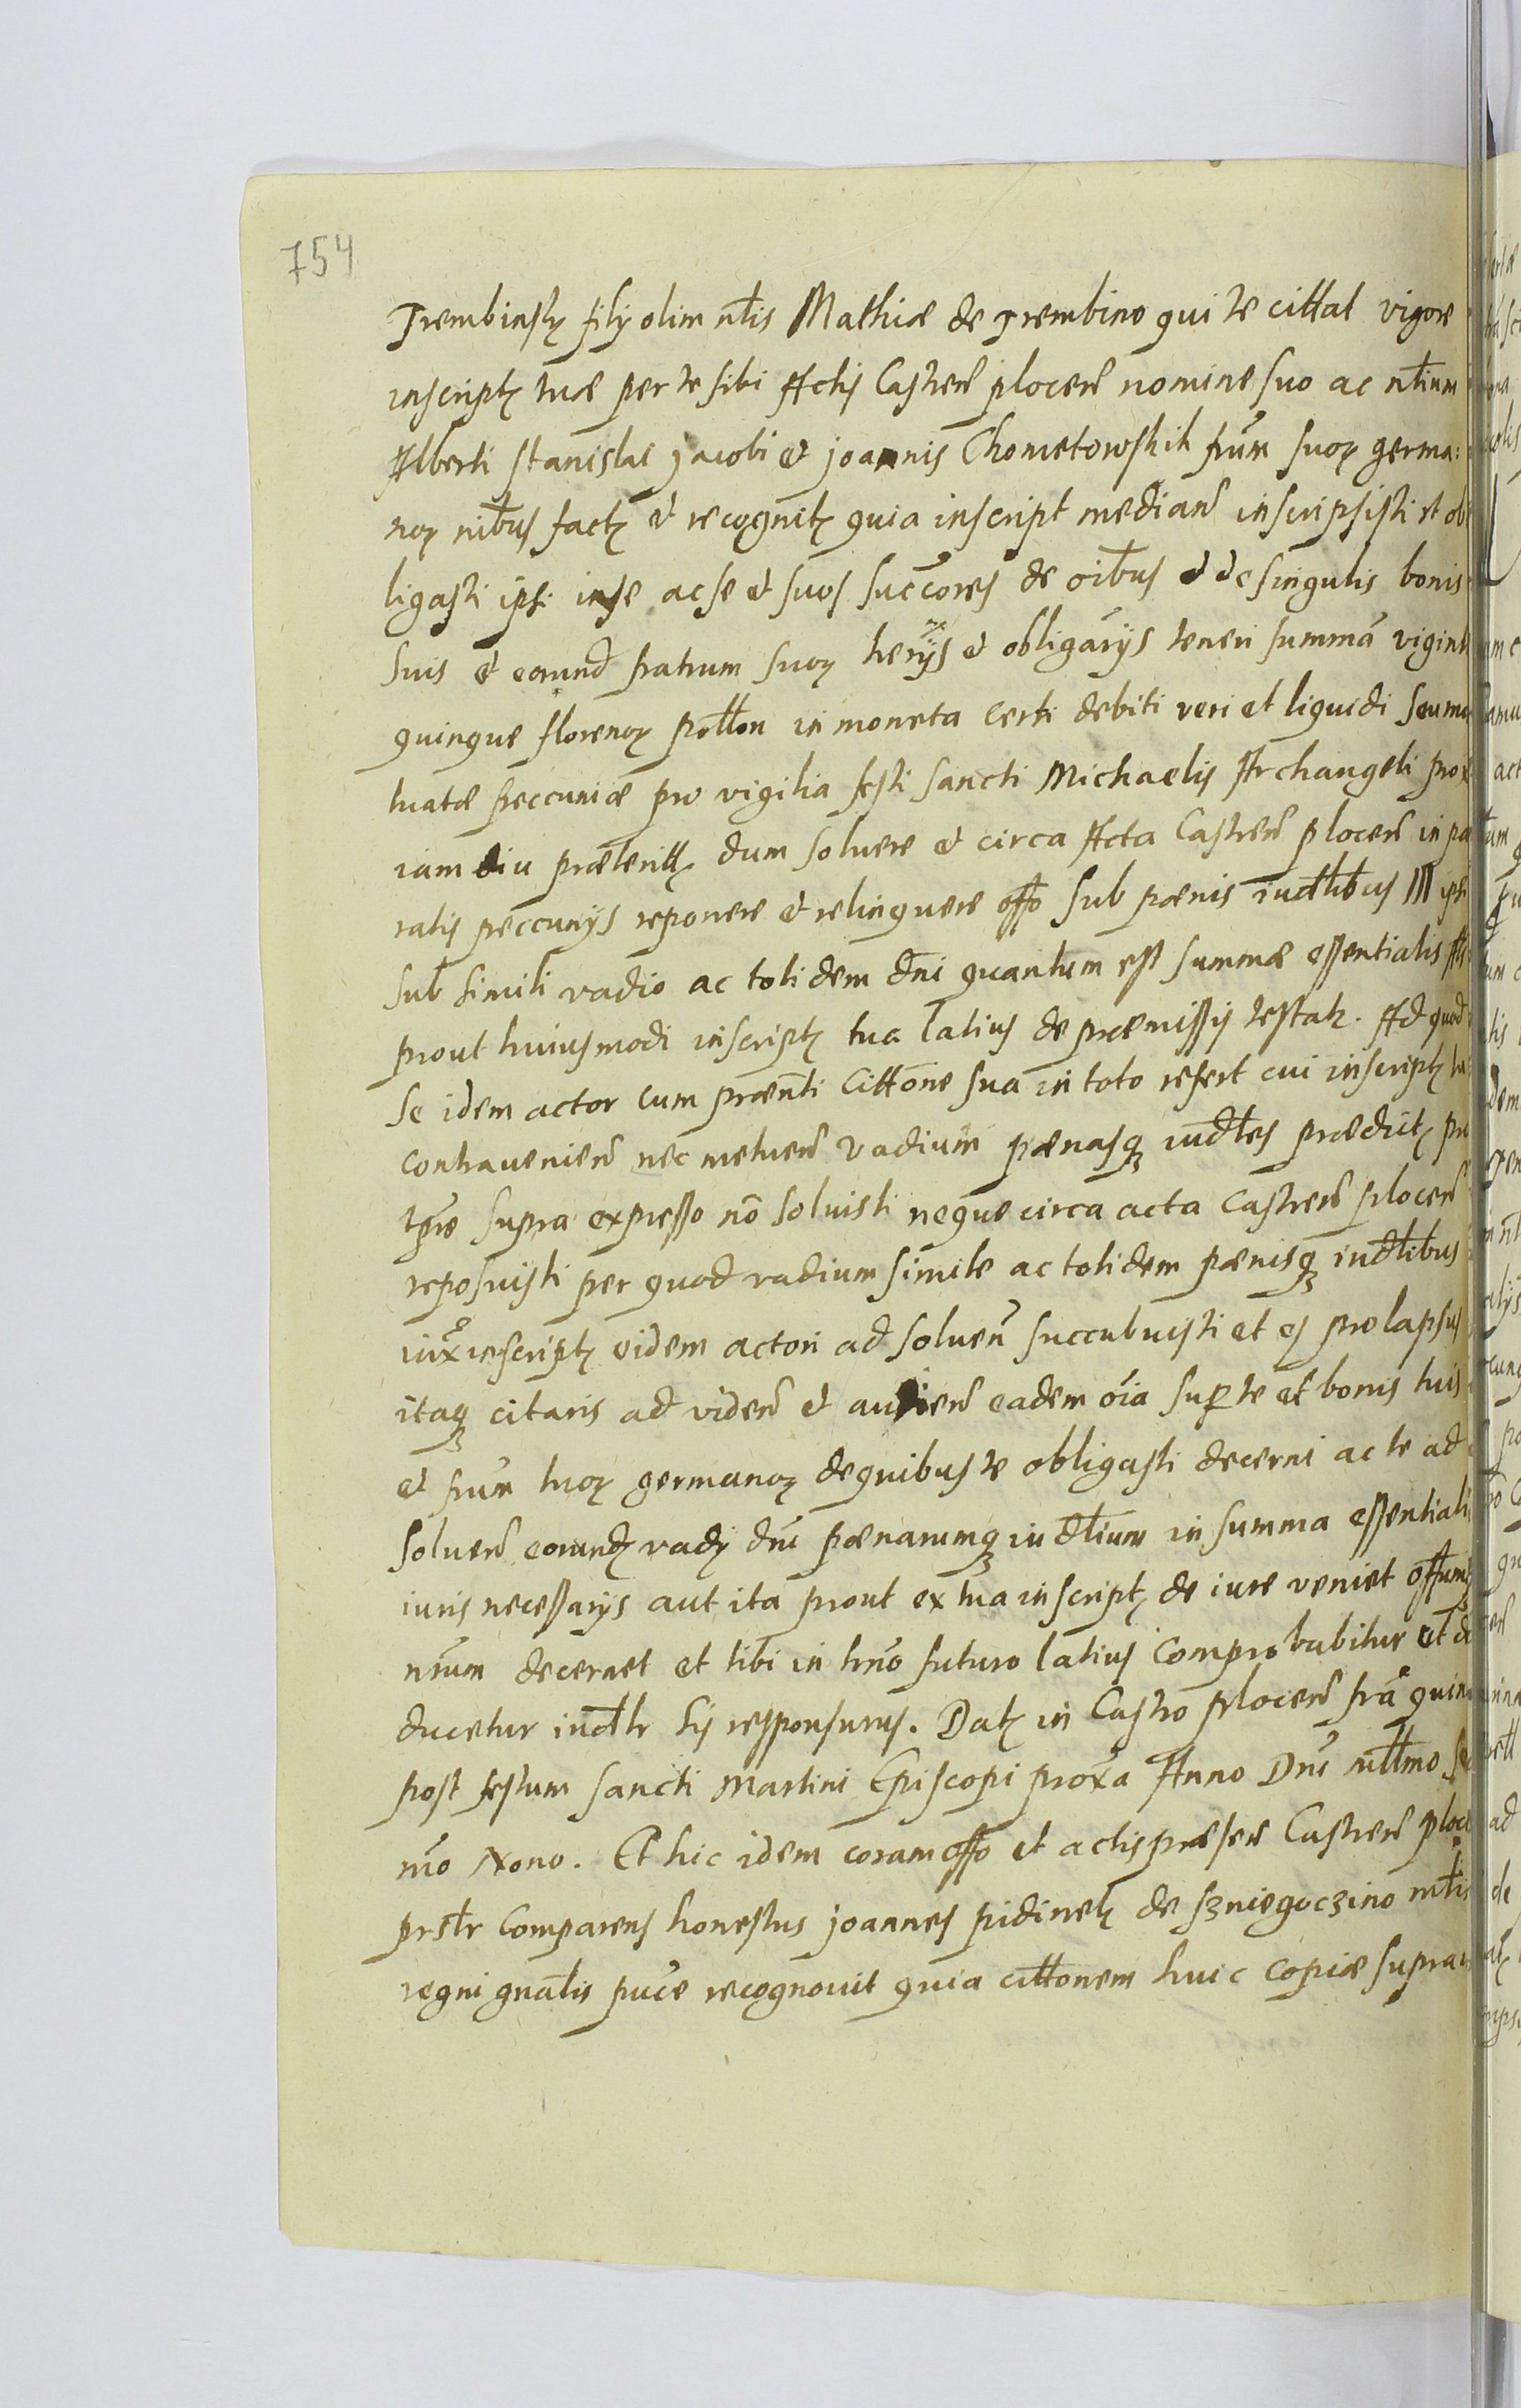 754
Trembinsky filÿ olim nt̃lis Mathiæ de Trembino qui te cittat vigore
inscriptꝫ tuæ per te sibi Actis Castreñ plocen̄ nomine suo ac nt̃lium
Alberti Stanislai Jacobi et Joannis Chometowskih frũm suoꝝ germa:
noꝝ nĩbus factꝫ et recognitꝫ quia inscript median̄ inscripsisti et ob
ligasti ipsi in se ac se et suos succ̃ores de oĩbus et de singulis bonis
suis et eorund fratrum suoꝝ herÿs et obligãrÿs teneri summã viginti
quinque florenoꝝ poĨłon in moneta certi debiti veri et liquidi seu mu
tuatæ peccuniæ pro vigilia festi Sancti Michaelis Archangeli prox
iam diu præteritꝫ dum soluere et circa Acta Castren̄ plocen̄ in pa
ratis peccunÿs reponere et relinquere offo sub pænis iudłibus III ipsi
sub simili vadio ac totidem dñi quantum est summæ essentialis
prout huiusmodi inscriptꝫ tua latius de præmissis testatꝛ. Ad quod
se idem actor cum præñti cittõne sua in toto refert cui inscriptꝫ tu
contravenien̄ nec metuen̄ vadium pænasqꝫ iudłes prædictꝫ pro
tp̃re supra expresso nõ soluisti neque circa acta Castren̄ plocen̄
reposuisti per quod vadium simile ac totidem pænisqꝫ iudłibus
iux̃ inscriptꝫ eidem actori ad soluen̄ succubuisti et es prolapsus
itaqꝫ citaris ad viden̄ et audien̄ eadem oĩa sup te et bonis tuis
et frũm tuoꝝ germanoꝝ de quibus te obligasti decerni ac te ad
soluen̄ eorundꝫ vadÿ dñi pænarumqꝫ iudłium in summa essentiali
iuris necessarÿs aut ita prout ex tua inscriptꝫ de iure veniet offum
nr̃um decernet et tibi in trño futuro latius comprobabitur et de
ducetur iudłr sis responsurus. Datꝫ in Castro plocen̄ fr̃a quin
post festum Sancti Martini Episcopi prox̃a Anno Dñi millmo
mo Nono. Et hic idem coram offo et actis præsen̄ Castren̄ ploce
prsłr comparens honestus Joannes pidinek de Szniegoczino
regni gnãlis puc̃e recognovit quia cittonem huic copiæ supra